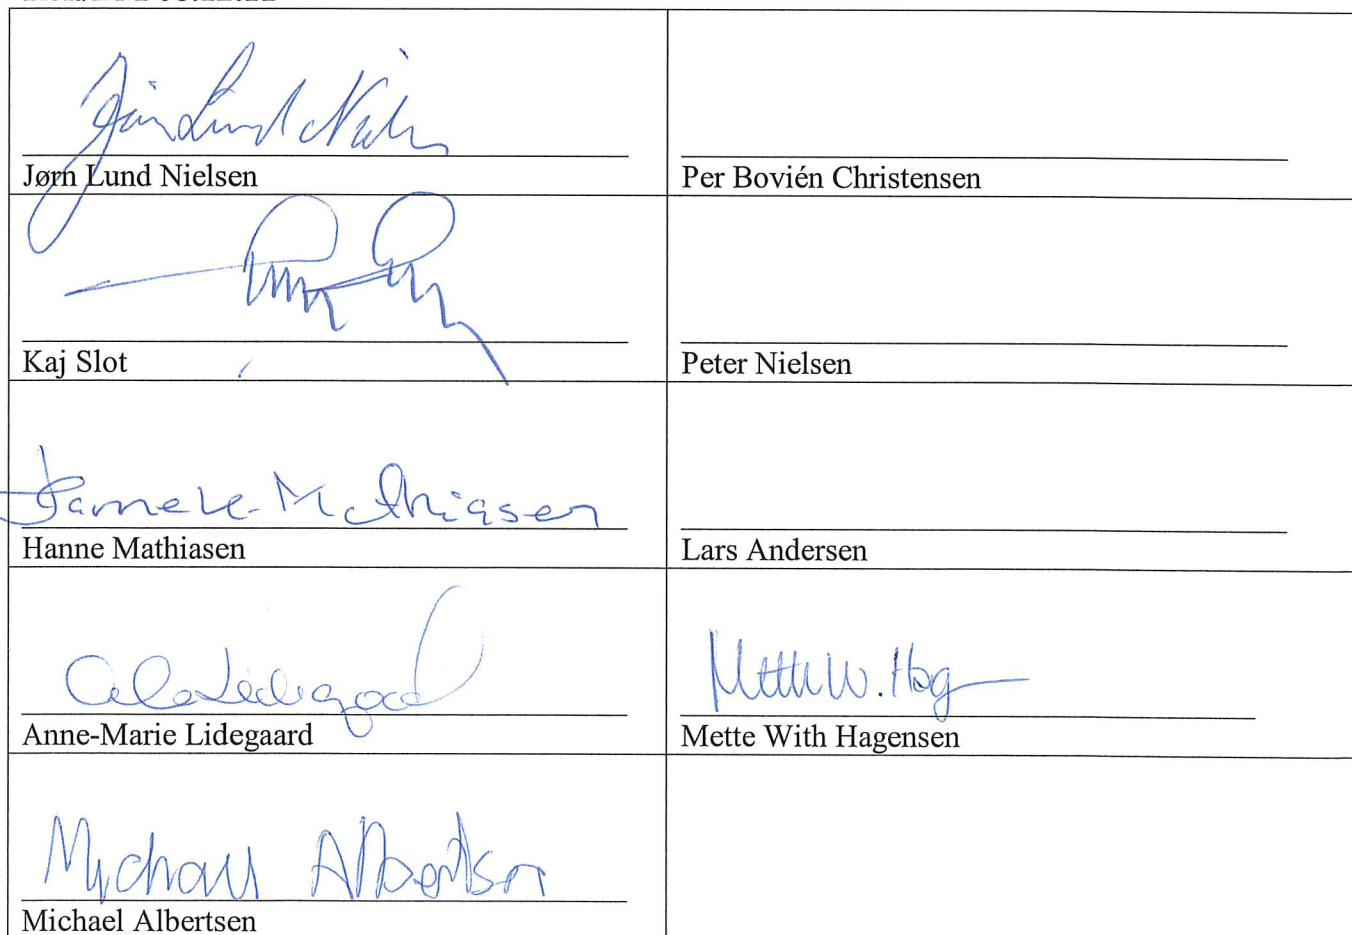 Jørn Lund Nielsen
Jørn Lund Nielsen
Per Bovién Christensen
Kaj Slot
Peter Nielsen
Hanne Mathiasen
Lars Andersen
Mette W. Hag
Anne-Marie Lidegaard
Mette With Hagensen
Michael Albertsen
Michael Albertsen